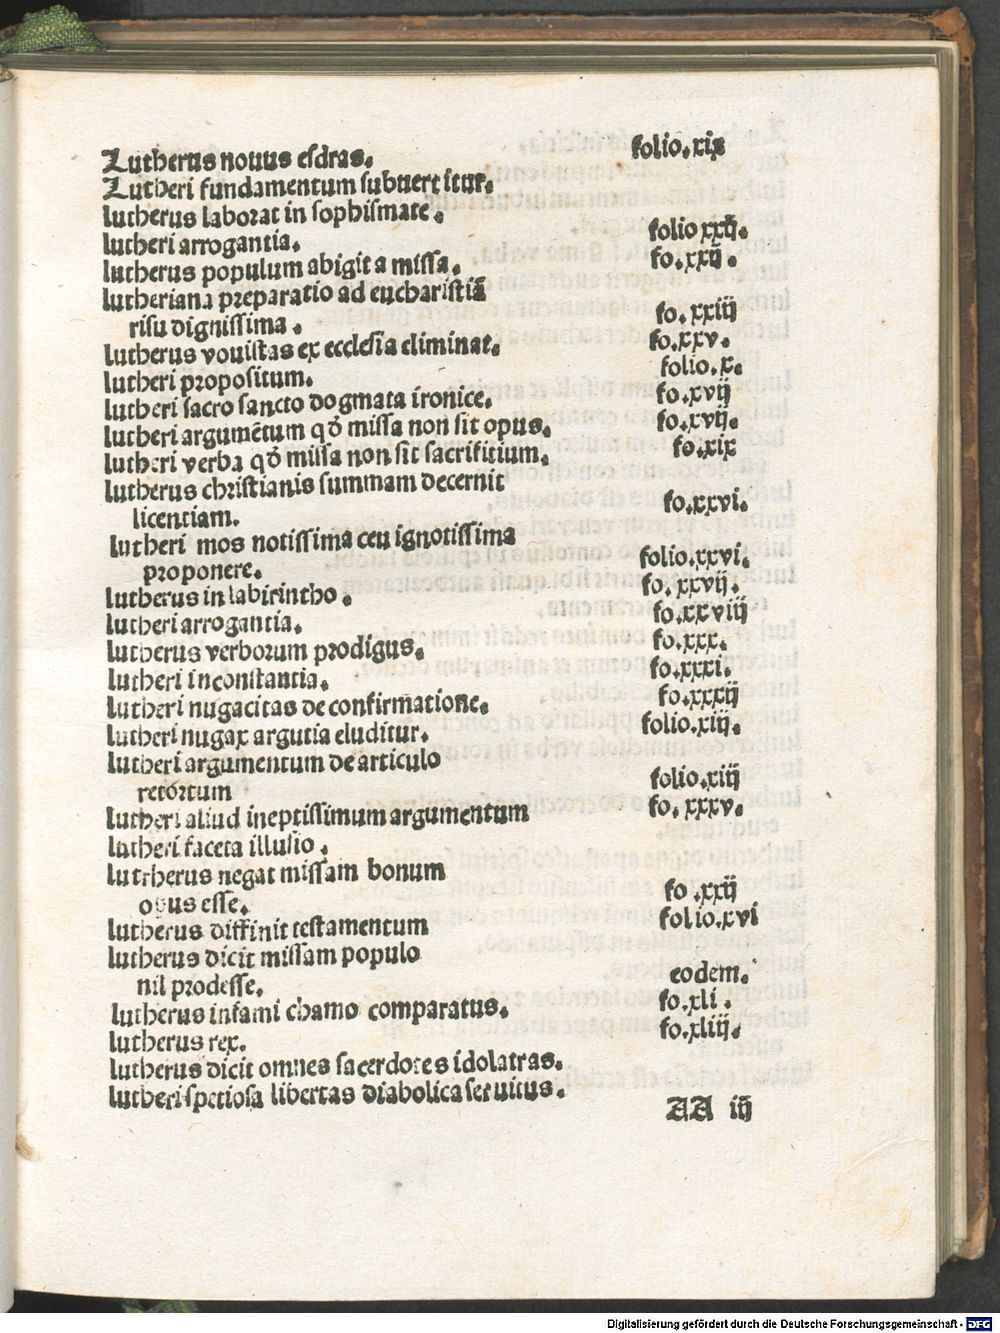 Lutherus nouus esdras. folio.xix
Lutheri fundamentum subuertitur.
lutherus laborat in sophismate.
lutheri arrogantia. folio xxij.
lutherus populum abigit a missa. fo.xxij.
lutheriana preparatio ad eucharistiā
risu dignissima. fo.xxiij
lutherus vouistas ex ecclesia eliminat. fo.xxv.
lutheri propositum. folio.x.
lutheri sacro sancto dogmata ironice. fo.xvij
lutheri argumētum qō missa non sit opus. fo.xvij.
lutheri verba qō missa non sit sacrificium. fo.xix
lutherus christianis summam decernit
licentiam. fo.xxvi.
lutheri mos notissima ceu ignotissima
proponere. folio.xxvi.
lutherus in labirintho. fo.xxvij.
lutheri arrogantia. fo.xxviij
lutherus verborum prodigus. fo.xxx.
lutheri inconstantia. fo.xxxi.
lutheri nugacitas de confirmatione. fo.xxxij
lutheri nugax argutia eluditur. folio.xij.
lutheri argumentum de articulo
retortum folio.xiij
lutheri aliud ineptissimum argumentum fo.xxxv.
lutheri faceta illusio.
lutrherus negat missam bonum
opus esse. fo.xxij
lutherus diffinit testamentum folio.xvi
lutherus dicit missam populo
nil prodesse. eodem.
lutherus infami chamo comparatus. fo.xli.
lutherus rex. fo.xliij.
lutherus dicit omnes sacerdotes idolatras.
lutheri spetiosa libertas diabolica seruitus.
AA iij
Digitalisierung gefördert durch die Deutsche Forschungsgemeinschaft - DFG